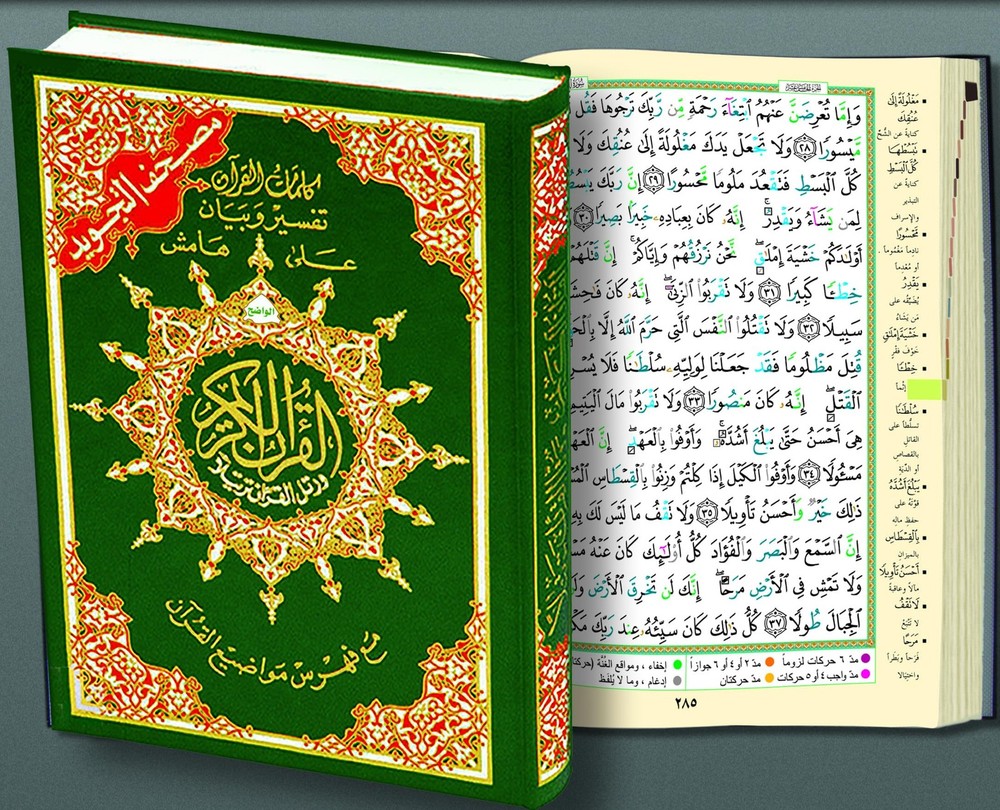 مصحف التجويد
كلمات القرآن
تفسير وبيان
على هامش
الواضح
القرآن الكريم
ورتل القرآن ترتيلا
مع فهرس مواضيع القرآن
وَإِمَّا تُعْرِضَنَّ عَنْهُمُ ٱبْتِغَآءَ رَحْمَةٍ مِّن رَّبِّكَ تَرْجُوهَا فَقُل
مَّيْسُورًا ٢٨ وَلَا تَجْعَلْ يَدَكَ مَغْلُولَةً إِلَىٰ عُنُقِكَ وَلَا
كُلَّ ٱلْبَسْطِ فَتَقْعُدَ مَلُومًا مَّحْسُورًا ٢٩ إِنَّ رَبَّكَ يَبْسُطُ
لِمَن يَشَآءُ وَيَقْدِرُ إِنَّهُۥ كَانَ بِعِبَادِهِۦ خَبِيرًۢا بَصِيرًا ٣٠
أَوْلَٰدَكُمْ خَشْيَةَ إِمْلَٰقٍ نَّحْنُ نَرْزُقُهُمْ وَإِيَّاكُمْ إِنَّ قَتْلَهُمْ
خِطْـًٔا كَبِيرًا ٣١ وَلَا تَقْرَبُوا۟ ٱلزِّنَىٰٓ إِنَّهُۥ كَانَ فَٰحِشَ
سَبِيلًا ٣٢ وَلَا تَقْتُلُوا۟ ٱلنَّفْسَ ٱلَّتِى حَرَّمَ ٱللَّهُ إِلَّا
قُتِلَ مَظْلُومًا فَقَدْ جَعَلْنَا لِوَلِيِّهِۦ سُلْطَٰنًا فَلَا يُسْرِ
ٱلْقَتْلِ إِنَّهُۥ كَانَ مَنصُورًا ٣٣ وَلَا تَقْرَبُوا۟ مَالَ ٱلْيَتِيمِ
هِىَ أَحْسَنُ حَتَّىٰ يَبْلُغَ أَشُدَّهُۥ وَأَوْفُوا۟ بِٱلْعَهْدِ إِنَّ ٱلْعَهْ
مَسْـُٔولًا ٣٤ وَأَوْفُوا۟ ٱلْكَيْلَ إِذَا كِلْتُمْ وَزِنُوا۟ بِٱلْقِسْطَاسِ ٱلْمُسْ
ذَٰلِكَ خَيْرٌ وَأَحْسَنُ تَأْوِيلًا ٣٥ وَلَا تَقْفُ مَا لَيْسَ لَكَ بِهِ
إِنَّ ٱلسَّمْعَ وَٱلْبَصَرَ وَٱلْفُؤَادَ كُلُّ أُو۟لَٰٓئِكَ كَانَ عَنْهُ مَسْ
وَلَا تَمْشِ فِى ٱلْأَرْضِ مَرَحًا إِنَّكَ لَن تَخْرِقَ ٱلْأَرْضَ وَلَ
ٱلْجِبَالَ طُولًا ٣٧ كُلُّ ذَٰلِكَ كَانَ سَيِّئُهُۥ عِندَ رَبِّكَ مَكْ
مَغْلُولَةً إِلَىٰ
عُنُقِكَ
كناية عن الشح
تَبْسُطْهَا
كُلَّ ٱلْبَسْطِ
كناية عن
التبذير
والإسراف
مَحْسُورًا
نادماً مغموماً
أو معدماً
يَقْدِرُ
يضيّقه على
من يشاء
خَشْيَةَ إِمْلَٰقٍ
خوف فقر
خِطْـًٔا
إثماً
سُلْطَٰنًا
تسلّطاً على
القاتل
بالقصاص
أو الدّية
يَبْلُغَ أَشُدَّهُ
قوّته على
حفظ ماله
بِٱلْقِسْطَاسِ
بالميزان
أَحْسَنُ تَأْوِيلًا
مآلاً وعاقبة
لَا تَقْفُ
لا تتّبع
مَرَحًا
فرحاً وبطراً
واختيالا
مدّ ٦ حركات لزوماً مدّ ٢ أو ٤ أو ٦ جوازاً إخفاء، ومواقع الغُنَّة (حركتا
مدّ واجب ٤ أو ٥ حركات مدّ حركتان إدغام، وما لا يُلفَظ
٢٨٥